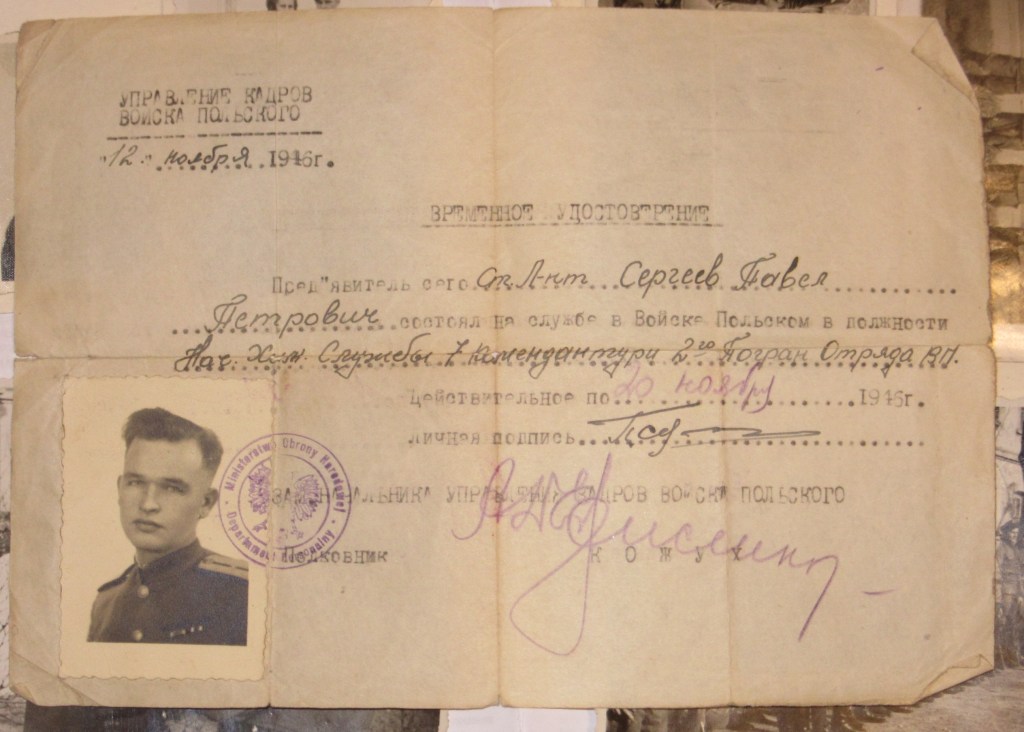 УПРАВЛЕНИЕ КАДРОВ
ВОЙСКА ПОЛЬСКОГО
"12" ноября 1946г.
ВРЕМЕННОЕ УДОСТОВТРЕНИЕ
Пред"явитель сего Ст. Л-нт Сергеев Павел
Петрович состоял на службе в Войске Польском в должности
Нач. Хим. Службы 7 комендантури 2го Погран Отряда ВП.
Действительное по 20 ноября 1946г.
Личная подпись
Ministerstwo Obrony Narodowej
Departament Personalny
ЗАМ НАЧАЛЬНИКА УПРАВЛЕНИЯ КАДРОВ ВОЙСКА ПОЛЬСКОГО
Полковник К О Ж У Х